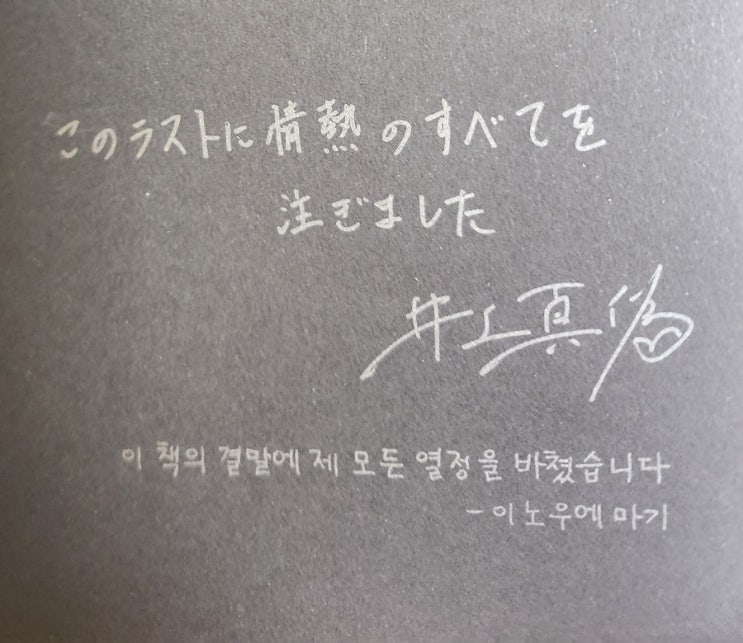 このラストに情熱のすべてを
注ぎました
井上真偽
이 책의 결말에 제 모든 열정을 바쳤습니다
-이노우에 마기